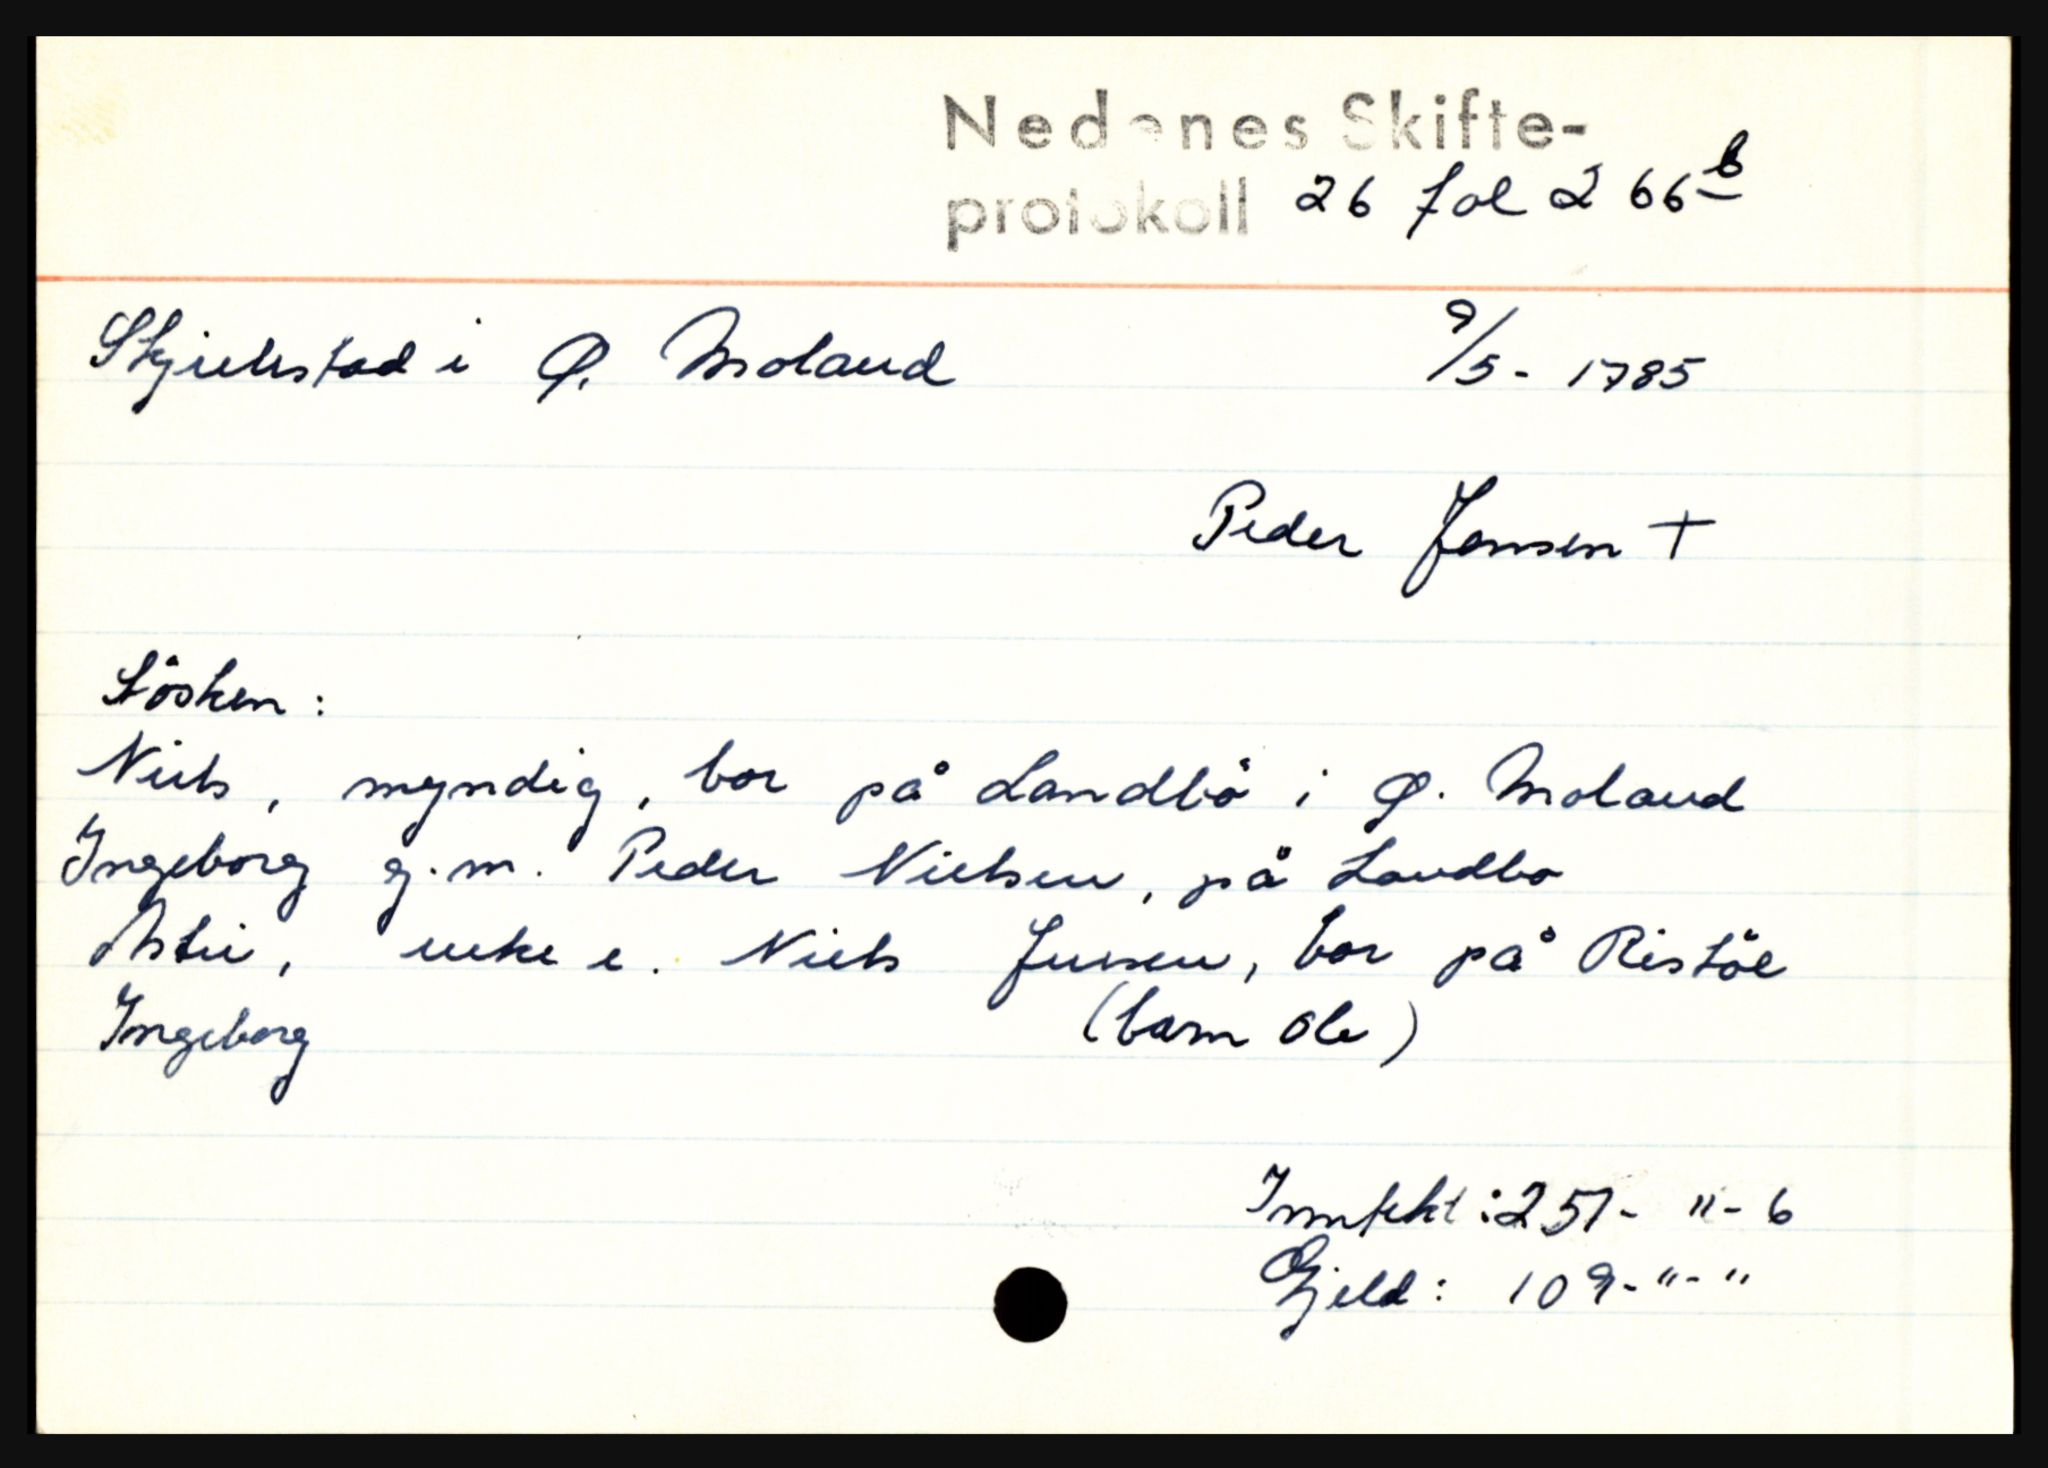 Nedenes Skifte-
protokoll 26 fol 266 b
Skjulestad i Ø. Moland 9/5 - 1785
Peder Jensen +
Søsken:
Niels, myndig, bor på Landbö i Ø. Moland
Ingeborg g.m. Peder Nielsen, på Landbo
Astri, enke e. Niels Jensen, bor på Ristöl
Ingeborg (barn Ole)
Inntekt: 251- "- 6
Gjeld: 109-"-"